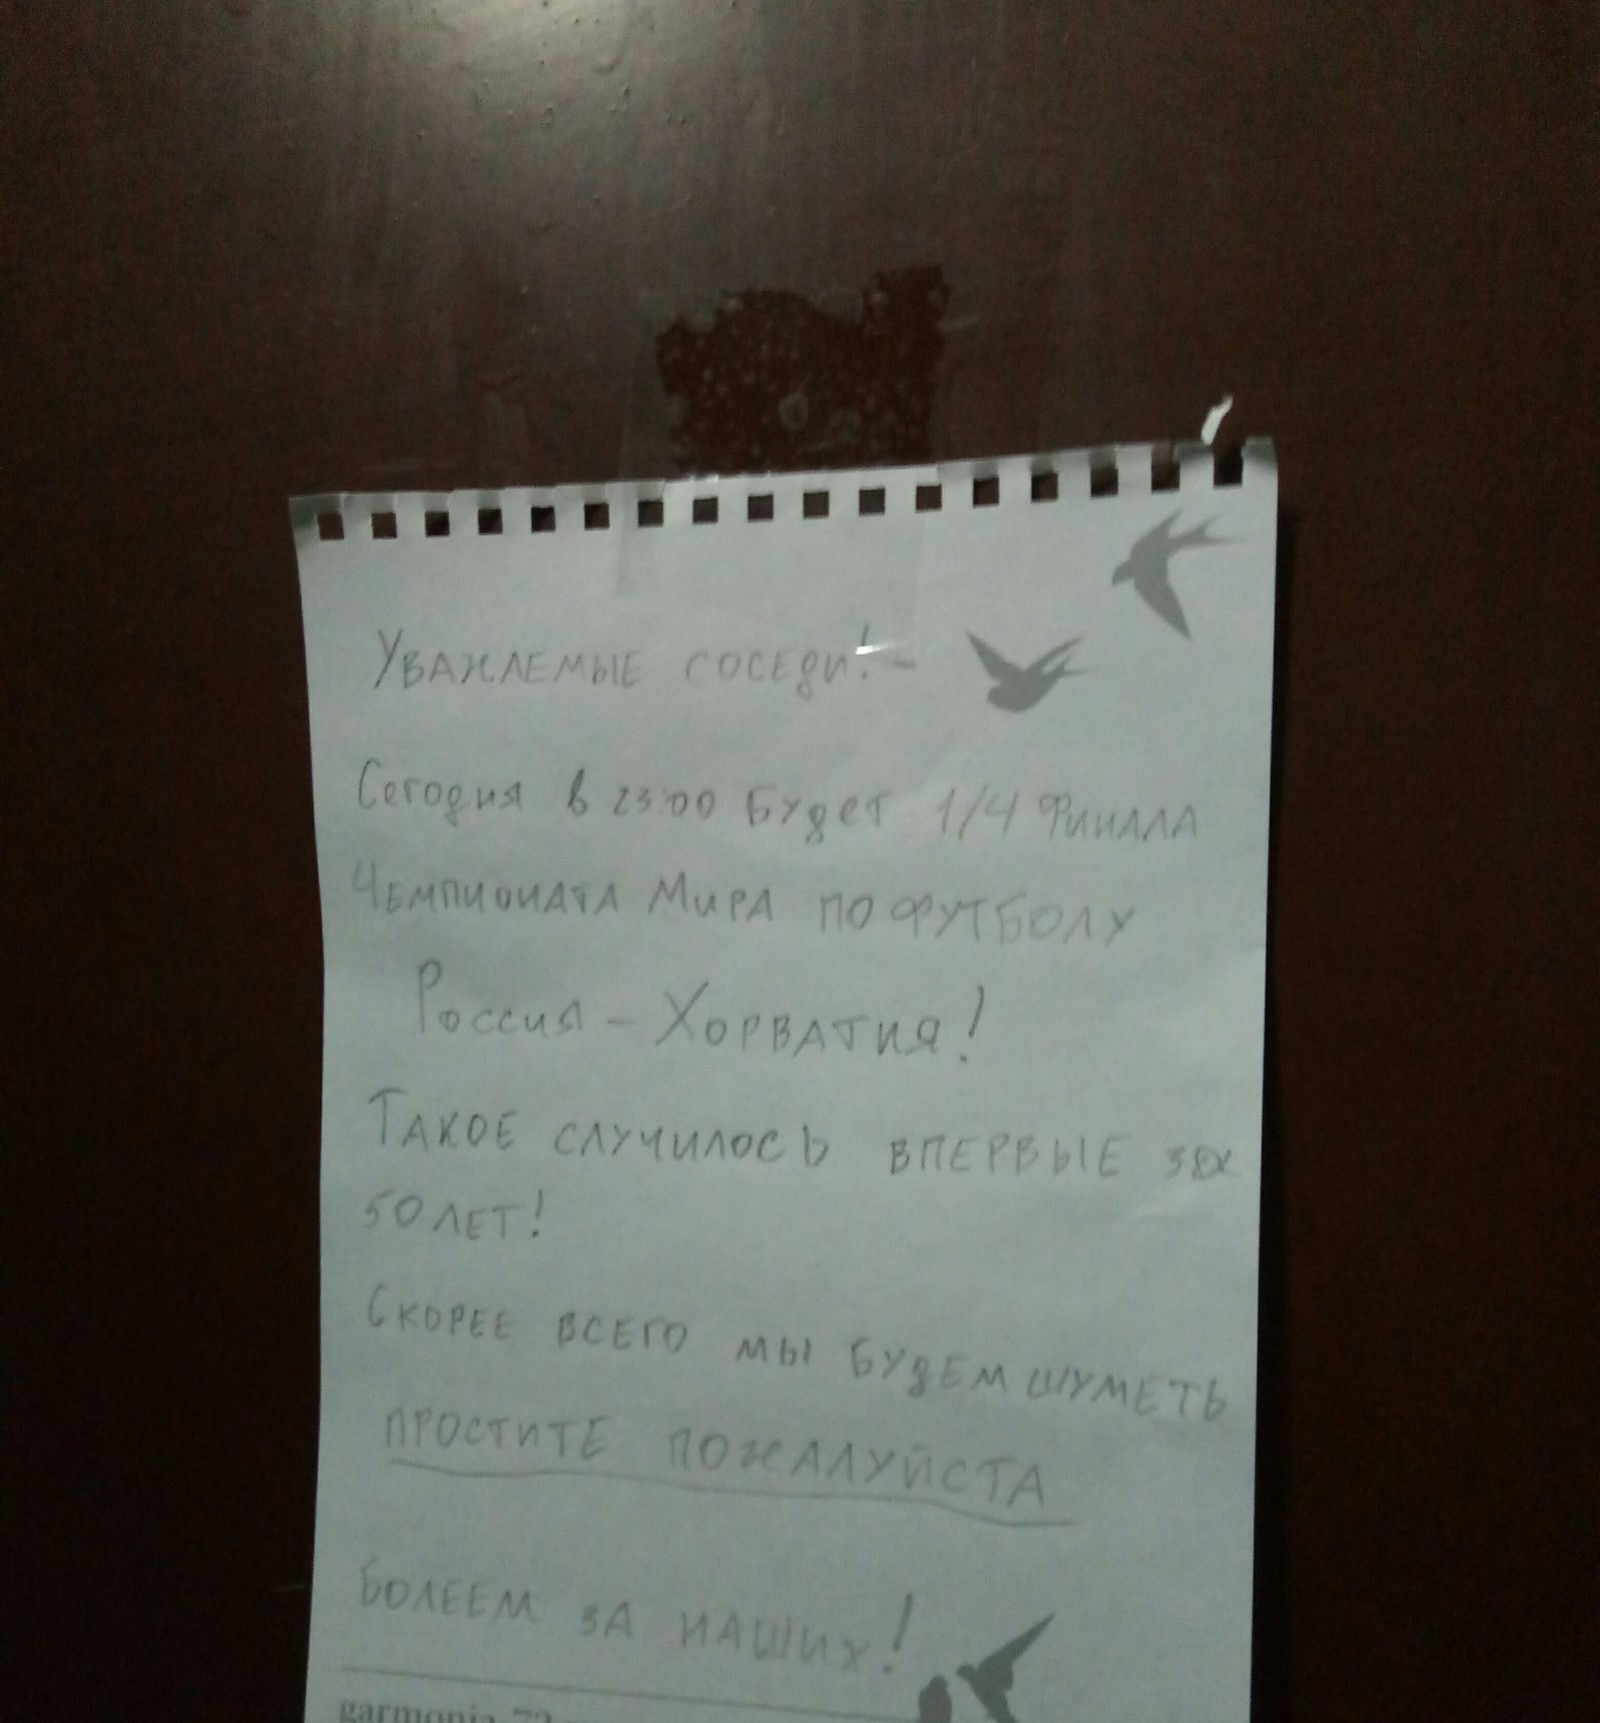 Уважаемые соседи!
Сегодня в 23:00 будет 1/4 финала
Чемпионата Мира по футболу
Россия - Хорватия!
Такое случилось впервые за
50 лет!
Скорее всего мы будем шуметь
простите пожалуйста
Болеем за наших!
garmonia-72